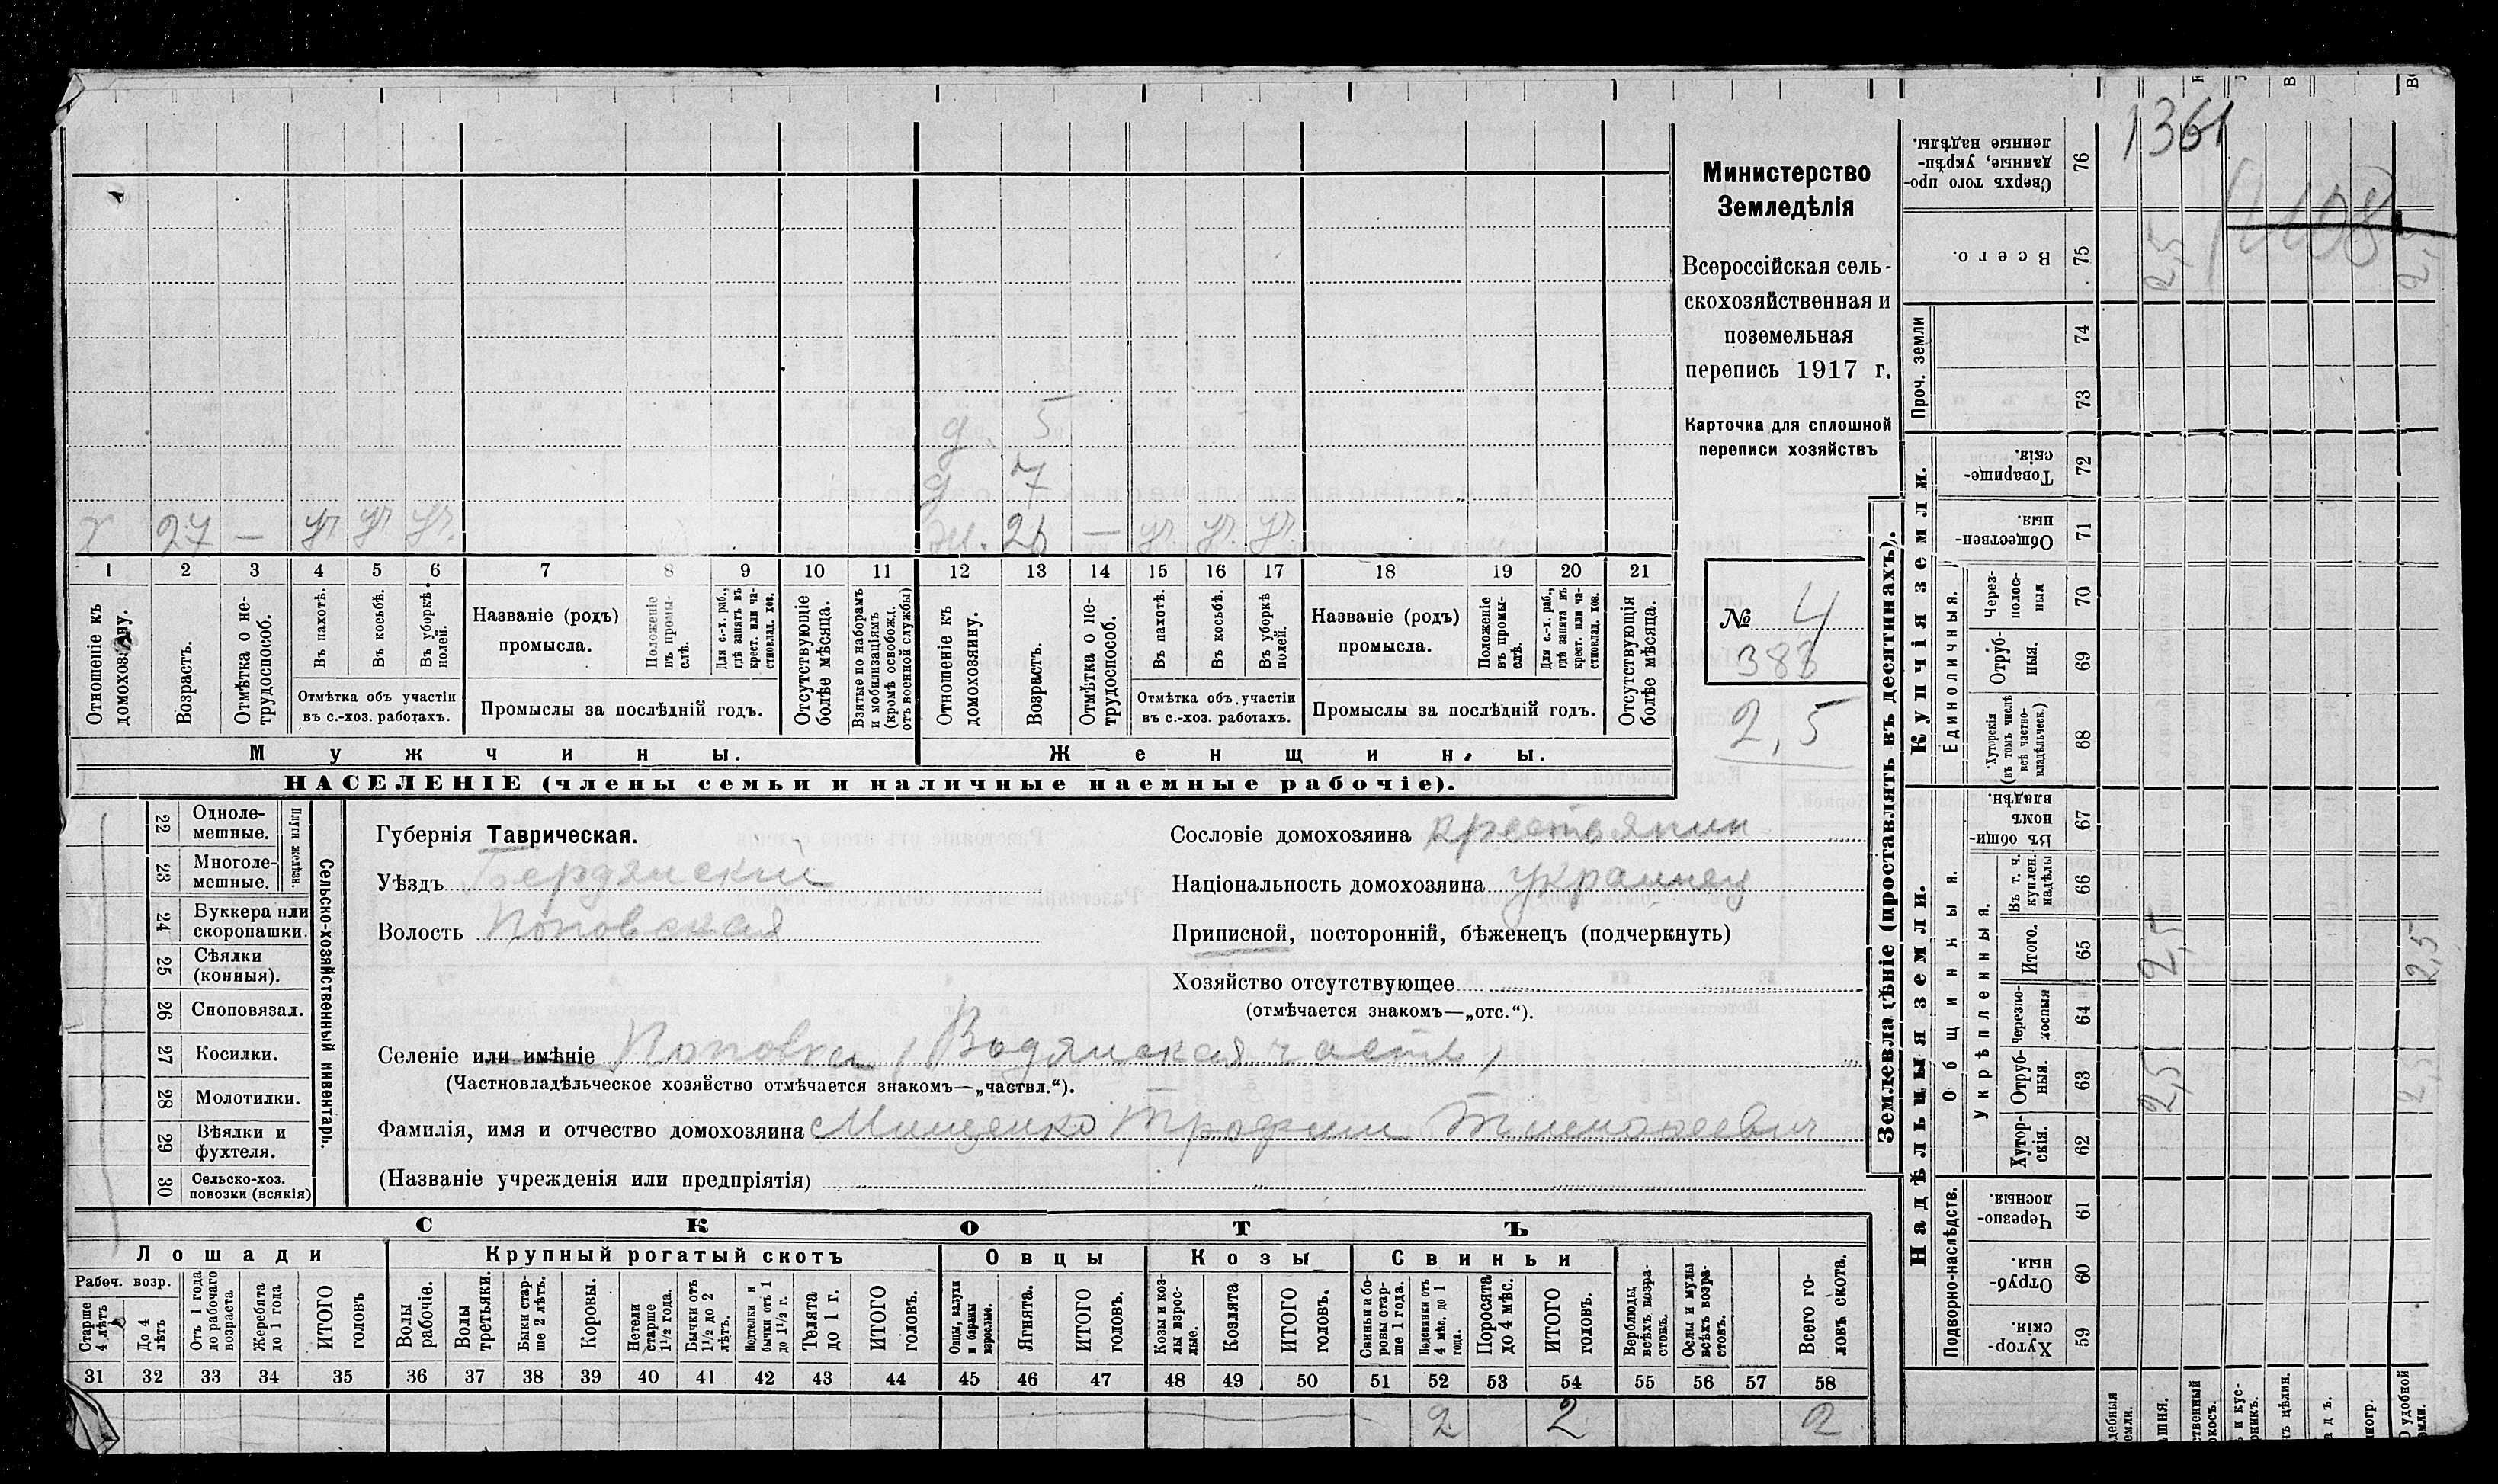 1361
1108
Министерство
Земледѣлія
Всероссійская сель-
скохозяйственная и
поземельная
перепись 1917 г.
Карточка для сплошной
переписи хозяйствъ
№ 4
383
2,5
д. 5
д 7
х 27 — ут ут ут. ж. 26 — ут. ут. ут.
1 2 3 4 5 6 7 8 9 10 11 12 13 14 15 16 17 18 19 20 21
Отношеніе къ домохозяину.
Возрастъ.
Отмѣтка о не-трудоспособ.
Въ пахотѣ.
Въ косьбѣ.
Въ уборкѣ полей.
Отмѣтка объ участіи
въ с.-хоз. работахъ.
Названіе (родъ)
промысла.
Положеніе въ промы-слѣ.
Для с.-х. раб., гдѣ занятъ въ крест. или ча-стновлад. хоз.
Промыслы за послѣдній годъ.
Отсутствующіе болѣе мѣсяца.
Взятые по наборамъ и мобилизаціямъ (кромѣ освобожд. отъ военной службы)
Отношеніе къ домохозяину.
Возрастъ.
Отмѣтка о не-трудоспособ.
Въ пахотѣ.
Въ косьбѣ.
Въ уборкѣ полей.
Отмѣтка объ участіи
въ с.-хоз. работахъ.
Названіе (родъ)
промысла.
Положеніе въ промы-слѣ.
Для с.-х. раб., гдѣ занята въ крест. или ча-стновлад. хоз.
Промыслы за послѣдній годъ.
Отсутствующія болѣе мѣсяца.
Мужчины. Женщины.
НАСЕЛЕНІЕ (члены семьи и наличные наемные рабочіе).
22 Одноле-мешные.
23 Многоле-мешные.
Плуги желѣзн.
24 Буккера или скоропашки.
25 Сѣялки (конныя).
26 Сноповязал.
27 Косилки.
28 Молотилки.
29 Вѣялки и фухтеля.
30 Сельско-хоз. повозки (всякія)
Сельско-хозяйственный инвентарь.
Губернія Таврическая.
Уѣздъ Бердянскій
Волость Поповская
Сословіе домохозяина крестьянин
Національность домохозяина украинец
Приписной, посторонній, бѣженецъ (подчеркнуть)
Хозяйство отсутствующее
(отмѣчается знакомъ—„отс.“).
Селеніе или имѣніе Поповка, Водянская часть,
(Частновладѣльческое хозяйство отмѣчается знакомъ—„частвл.“).
Фамилія, имя и отчество домохозяина Мищенко Трофим Тимофеевич
(Названіе учрежденія или предпріятія)
СКОТЪ
Лошади Крупный рогатый скотъ Овцы Козы Свиньи
Рабоч. возр.
Старше 4 лѣтъ
До 4 лѣтъ
Отъ 1 года до рабочаго возраста
Жеребята до 1 года
ИТОГО головъ
Волы рабочіе.
Волы третьяки.
Быки стар-ше 2 лѣтъ.
Коровы.
Нетели старше 1½ года.
Бычки отъ 1½ до 2 лѣтъ.
Подтелки и бычки отъ 1 до 1½ г.
Телята до 1 г.
ИТОГО головъ.
Овцы, валухи и бараны взрослые.
Ягнята.
ИТОГО головъ.
Козы и коз-лы взрос-лые.
Козлята
ИТОГО головъ.
Свиньи и бо-ровы стар-ше 1 года.
Подсвинки отъ 4 мѣс. до 1 года.
Поросята до 4 мѣс.
ИТОГО головъ.
Верблюды всѣхъ возра-стовъ.
Ослы и мулы всѣхъ возра-стовъ.
Всего го-ловъ скота.
31 32 33 34 35 36 37 38 39 40 41 42 43 44 45 46 47 48 49 50 51 52 53 54 55 56 57 58
2 2 2
Землевладѣніе (проставлять въ десятинахъ).
Купчія земли.
Надѣльныя земли.
76 Сверхъ того про-данные, укрѣп-ленные надѣлы.
75 Всего. 2,5 2,5
Проч. земли
74
73
72 Товарище-скія.
71 Обществен-ныя.
Единоличныя.
70 Через-полос-ныя
69 Отруб-ныя.
68 Хуторскія (въ томъ числѣ всѣ частно-владѣльческ.)
Общинныя.
67 Въ общи-номъ владѣн.
Укрѣпленныя.
66 Въ т. ч. куплен. надѣлы
65 Итого. 2,5 2,5
64 Черезпо-лосныя
63 Отруб-ныя. 2,5 2,5
62 Хутор-скія.
Подворно-наслѣдств.
61 Черезпо-лосныя.
60 Отруб-ныя.
59 Хутор-скія.